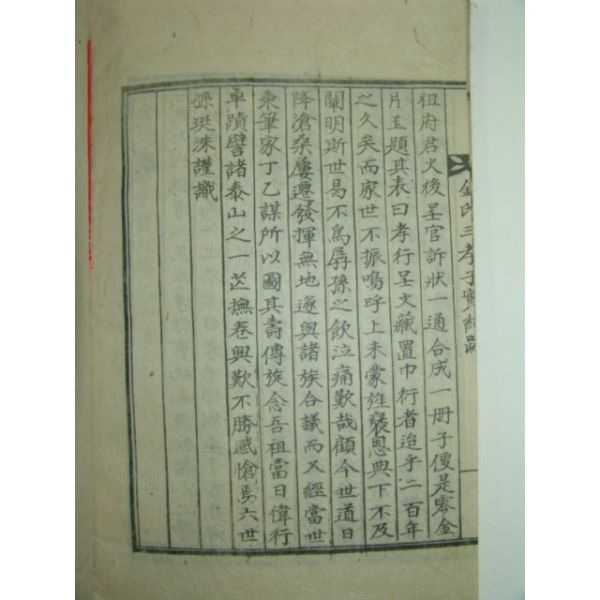 金氏三孝子實紀跋
祖府君火後呈官訴狀一通合成一冊子僾是零金
片玉題其表曰孝行呈文藏置巾衍者迨乎二百年
之久矣而家世不振嗚呼上未蒙旌褒恩典下不及
闡明斯世曷不爲孱孫之飮泣痛歎哉顧今世道日
降滄桑屢遷發揮無地遂與諸族合議而又經當世
秉筆家丁乙謀所以圖其壽傳旋念吾祖當日偉行
卓蹟譬諸泰山之一芒撫卷興歎不勝感愴焉六世
孫珽洙謹識